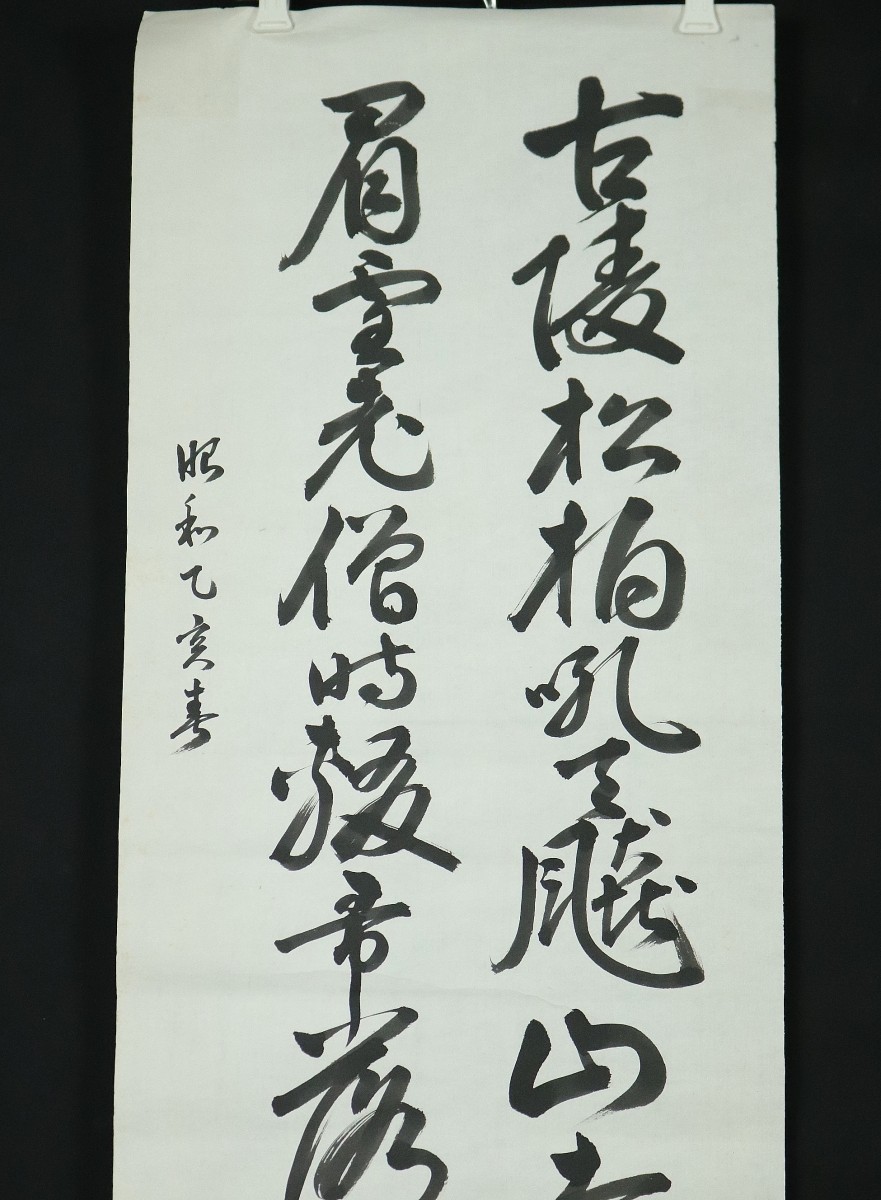 古陵松柏吼天飈山寺
眉雪老僧時輟帚落
昭和乙亥春